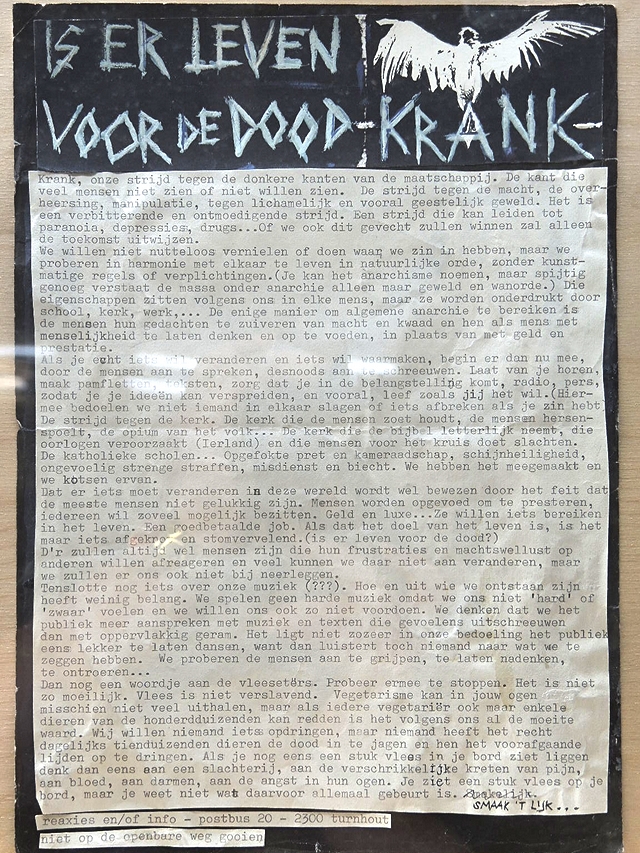 IS ER LEVEN
VOOR DE DOOD - KRANK -
Krank, onze strijd tegen de donkere kanten van de maatschappij. De kant die
veel mensen niet zien of niet willen zien. De strijd tegen de macht, de over-
heersing, manipulatie, tegen lichamelijk en vooral geestelijk geweld. Het is
een verbitterende en ontmoedigende strijd. Een strijd die kan leiden tot
paranoia, depressies, drugs...Of we ook dit gevecht zullen winnen zal alleen
de toekomst uitwijzen.
We willen niet nutteloos vernielen of doen waar we zin in hebben, maar we
proberen in harmonie met elkaar te leven in natuurlijke orde, zonder kunst-
matige regels of verplichtingen.(Je kan het anarchisme noemen, maar spijtig
genoeg verstaat de massa onder anarchie alleen maar geweld en wanorde.) Die
eigenschappen zitten volgens ons in elke mens, maar ze worden onderdrukt door
school, kerk, werk,... De enige manier om algemene anarchie te bereiken is
de mensen hun gedachten te zuiveren van macht en kwaad en hen als mens met
menselijkheid te laten denken en op te voeden, in plaats van met geld en
prestatie.
Als je echt iets wil veranderen en iets wil waarmaken, begin er dan nu mee,
door de mensen aan te spreken, desnoods aan te schreeuwen. Laat van je horen,
maak pamfletten, teksten, zorg dat je in de belangstelling komt, radio, pers,
zodat je je ideeën kan verspreiden, en vooral, leef zoals jij het wil.(Hier-
mee bedoelen we niet iemand in elkaar slagen of iets afbreken als je zin hebt.
De strijd tegen de kerk. De kerk die de mensen zoet houdt, de mensen hersen-
spoelt, de opium van het volk... De kerk die de bijbel letterlijk neemt, die
oorlogen veroorzaakt (Ierland) en die mensen voor het kruis doet slachten.
De katholieke scholen... Opgefokte pret en kameraadschap, schijnheiligheid,
ongevoelig strenge straffen, misdienst en biecht. We hebben het meegemaakt en
we kotsen ervan.
Dat er iets moet veranderen in deze wereld wordt wel bewezen door het feit dat
de meeste mensen niet gelukkig zijn. Mensen worden opgevoed om te presteren,
iedereen wil zoveel mogelijk bezitten. Geld en luxe...Ze willen iets bereiken
in het leven. Een goedbetaalde job. Als dat het doel van het leven is, is het
maar iets afgekropen stomvervelend.(is er leven voor de dood?)
D'r zullen altijd wel mensen zijn die hun frustraties en machtswellust op
anderen willen afreageren en veel kunnen we daar niet aan veranderen, maar
we zullen er ons ook niet bij neerleggen.
Tenslotte nog iets over onze muziek (???). Hoe en uit wie we ontstaan zijn
heeft weinig belang. We spelen geen harde muziek omdat we ons niet 'hard' of
'zwaar' voelen en we willen ons ook zo niet voordoen. We denken dat we het
publiek meer aanspreken met muziek en texten die gevoelens uitschreeuwen
dan met oppervlakkig geram. Het ligt niet zozeer in onze bedoeling het publiek
eens lekker te laten dansen, want dan luistert toch niemand naar wat we te
zeggen hebben. We proberen de mensen aan te grijpen, te laten nadenken,
te ontroeren...
Dan nog een woordje aan de vleeseters. Probeer ermee te stoppen. Het is niet
zo moeilijk. Vlees is niet verslavend. Vegetarisme kan in jouw ogen
misschien niet veel uithalen, maar als iedere vegetariër ook maar enkele
dieren van de honderdduizenden kan redden is het volgens ons al de moeite
waard. Wij willen niemand iets opdringen, maar niemand heeft het recht
dagelijks tienduizenden dieren de dood in te jagen en hen het voorafgaande
lijden op te dringen. Als je nog eens een stuk vlees in je bord ziet liggen
denk dan eens aan een slachterij, aan de verschrikkelijke kreten van pijn,
aan bloed, aan darmen, aan de angst in hun ogen. Je ziet een stuk vlees op je
bord, maar je weet niet wat daarvoor allemaal gebeurt is. Smakelijk.
SMAAK 'T LIJK...
reaxies en/of info - postbus 20 - 2300 turnhout
niet op de openbare weg gooien